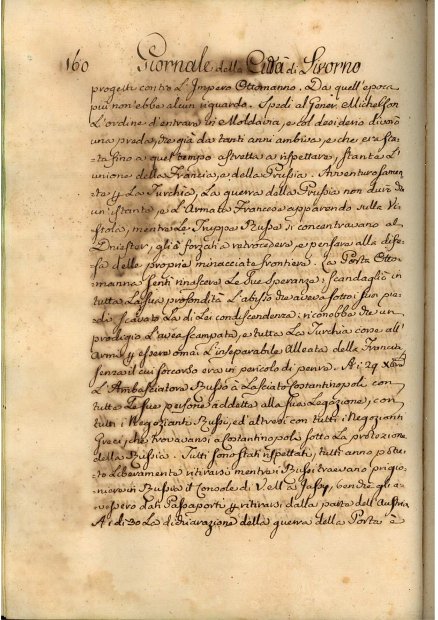 160 Giornale della Città di Livorno
progetti contro L'Impero Ottomanno. Da quell'epoca
più non ebbe alcun riguardo. Spedì al Gener. Michelson
L'ordine d'entrare in Moldavia, e col desiderio divorò
una preda, che già da tanti anni ambiva, e che era sta-
ta fino a quel tempo astretta a rispettare, stante L'
unione della Francia, e della Prussia. Avventurosamen-
te p. La Turchia, La guerra della Prussia non durò che
un istante, e L'Armata Francese apparendo sulla Vi-
stola, mentre Le Truppe Russe si concentravano al
Dniester, gli à forzati a retrocedere, e pensare alla dife-
sa delle proprie minacciate frontiere. La Porta Otto-
manna sentì rinascere Le sue speranze; scandagliò in
tutta La sua profondità L'abisso che aveva sotto i suoi pie-
di scavato La di Lei condiscendenza; riconobbe che un
prodigio L'avea scampata, e tutta La Turchia corse all'
Armi p. essere omai L'inseparabile Alleata della Francia
senza il cui soccorso era in pericolo di perire. A i 29 Xbre
L'Ambasciatore Russo à Lasciato Costantinopoli, con
tutte Le sue persone addette alla sua Legazione, con
tutti i Negozianti Russi, ed altresì con tutti i Negozianti
Greci, che trovavansi a Costantinopoli sotto La protezione
della Russia. Tutti sono stati rispettati, tutti anno potu-
to Liberamente ritirarsi mentre i Russi traevano prigio-
niero in Russia il Console di a Jassy, benché
avessero dati Passaporti p. ritirarsi dalla parte dell'Austria
A i di 30 La dichiarazione della guerra della Porta è